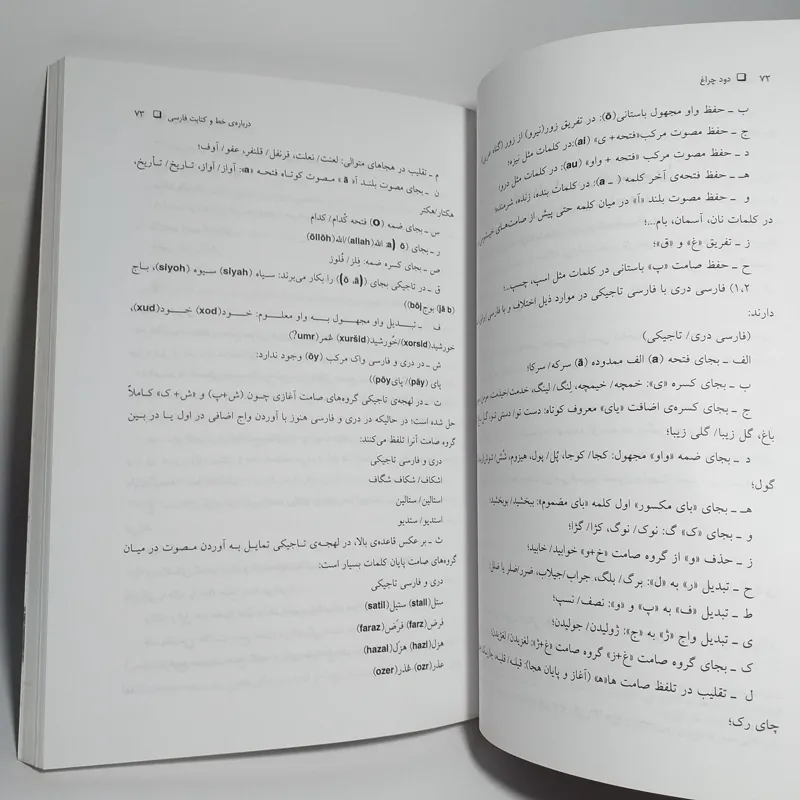 ۷۲ ❑ دود چراغ
ب ـ حفظ واو مجهول باستانی(ō): در تفریق زور(نیرو) از زور (گناه
ج ـ حفظ مصوت مرکب«فتحه+ ی» (ai):در کلمات مثل نیزه؛
د ـ حفظ مصوت مرکب«فتحه + واو» (au) در کلمات مثل درو؛
هـ ـ حفظ فتحه‌ی آخر کلمه ( ـ a): در کلمات بنده، زنده، شرمنده؛
و ـ حفظ مصوت بلند «آ» در میان کلمه حتی پیش از صامت‌های
در کلمات نان، آسمان، بام...؛
ز ـ تفریق «غ» و «ق»؛
ح ـ حفظ صامت «پ» باستانی در کلمات مثل اسپ، چسپ..؛
۱،۲) فارسی دری با فارسی تاجیکی در موارد ذیل اختلاف و با فارسی ایرانی
دارند:
(فارسی دری/ تاجیکی)
الف ـ بجای فتحه (a) الف ممدوده (ā) سرکه/ سرکا؛
ب ـ بجای کسره «ی»: خمچه/ خیمچه، لِنگ/ لینگ، خدمت/خیدمت
ج ـ بجای کسره‌ی اضافت «یای» معروف کوتاه: دست تو/ دستی تو، گل
باغ، گل زیبا/ گلی زیبا؛
د ـ بجای ضمه «واو» مجهول: کجا/ کوجا، پُل/ پول، هیزوم، شُش/
گول؛
هـ ـ بجای «بای مکسور» اول کلمه «بای مضموم»: ببخشید/ بوبخشید؛
و ـ بجای «ک» گ: نوک/ نوگ، کژا/ گژا؛
ز ـ حذف «و» از گروه صامت «خ+و» خوابید/ خابید؛
ح ـ تبدیل «ر» به «ل»: برگ/ بلگ، جراب/جیلاب، ضرر/ضلر یا ضلل؛
ط ـ تبدیل «ف» به «پ» و «و»: نصف/ نسپ؛
ی ـ تبدیل واج «ژ» به «ج»: ژولیدن/ جولیدن؛
ک ـ بجای گروه صامت «غ+ز» گروه صامت «غ+ژ»: لغزیدن/ لغژیدن؛
ل ـ تقلیب در تلفظ صامت ها«ه» (آغاز و پایان هجا): قبله/ قلبه،
چای رک؛
درباره‌ی خط و کتابت فارسی ❑ ۷۳
م ـ تقلیب در هجاهای متوالی: لعنت/ نعلت، قرنفل/ قلنفر، عفو/ آوف؛
ن ـ بجای مصوت بلند آ« ā » مصوت کوتاه فتحه «a: آواز/ آواز، تاریخ/ تأریخ،
هکتار/هکتر
س ـ بجای ضمه (O) فتحه کُدام/ کدام
ر ـ بجای (a ōالله(allah)/الله(ōllōh)
ص ـ بجای کسره ضمه: فِلز/ فُلوز
ق ـ در تاجیکی بجای (ō ،ā) را بکار می‌برند: سیاه (siyah) سیوه (siyoh)، باج
(jā b) بوج(bōj)
ف ـ تبدیل واو مجهول به واو معلوم: خود(xod) خود(xud)،
خورشید(xoršid)/خُورشید(xuršid) عُمر(umr?)
ش ـ در دری و فارسی واک مرکب (ōy) وجود ندارد:
پای (pāy)/ پای(pōy)
ت ـ در لهجه‌ی تاجیکی گروه‌های صامت آغازی چون (ش+پ) و «ش+ ک» کاملاً
حل شده است؛ در حالیکه در دری و فارسی هنوز با آوردن واج اضافی در اول یا در بین
گروه صامت آنرا تلفظ می‌کنند:
دری و فارسی تاجیکی
اشکاف/ شکاف شگاف
استالین/ ستالین
استدیو/ ستدیو
ث ـ بر عکس قاعده‌ی بالا، در لهجه‌ی تاجیکی تمایل به آوردن مصوت در میان
گروه‌های صامت پایان کلمات بسیار است:
دری و فارسی تاجیکی
ستل(stall) ستیل(satil)
فرض(farz) فرَض(faraz)
هزل(hazl) هزَل(hazal)
عذر(ozr) عُذر(ozer)